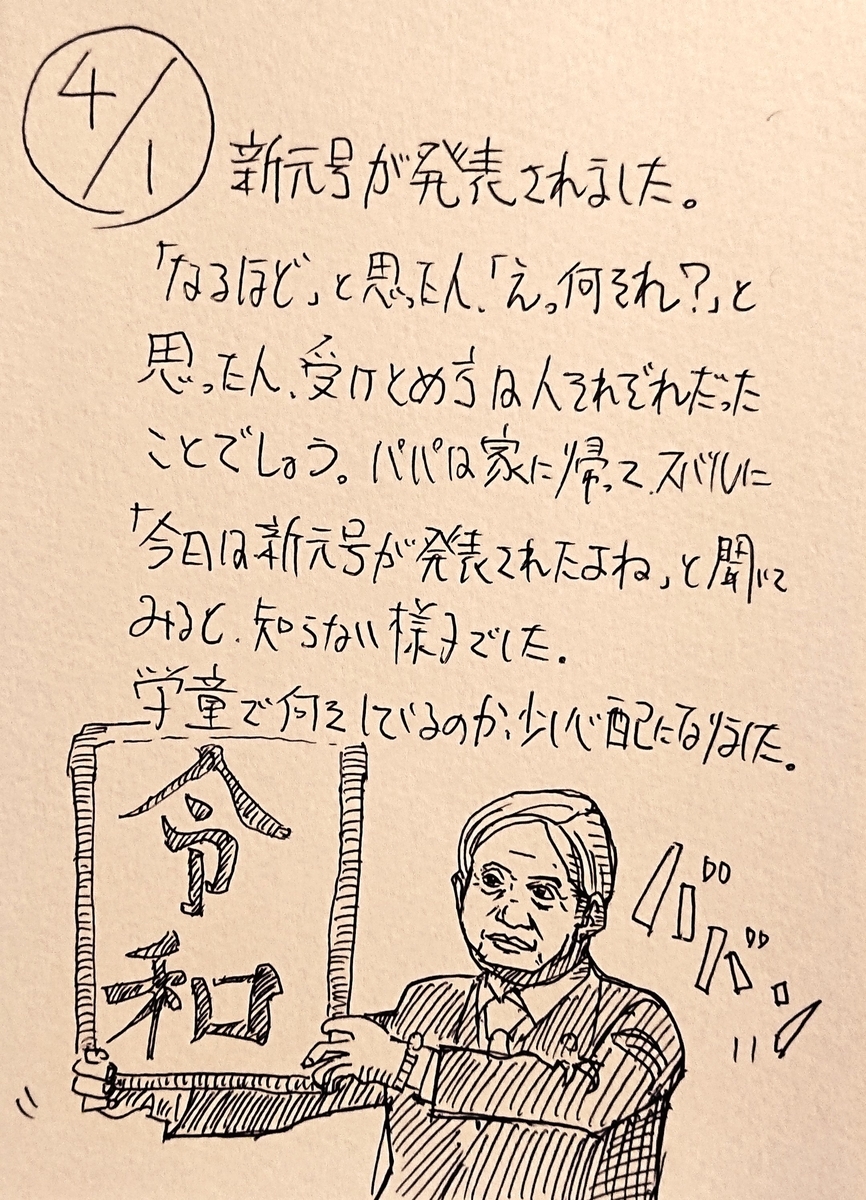 4/1
新元号が発表されました。
「なるほど」と思ったん、「えっ何それ?」と
思ったん、受けとめ方は人それぞれだった
ことでしょう。パパは家に帰って、スバルに
「今日は新元号が発表されたよね」と聞いて
みると、知らない様子でした。
学童で何をしているのか、少し心配になりました。
令
和
ババーン